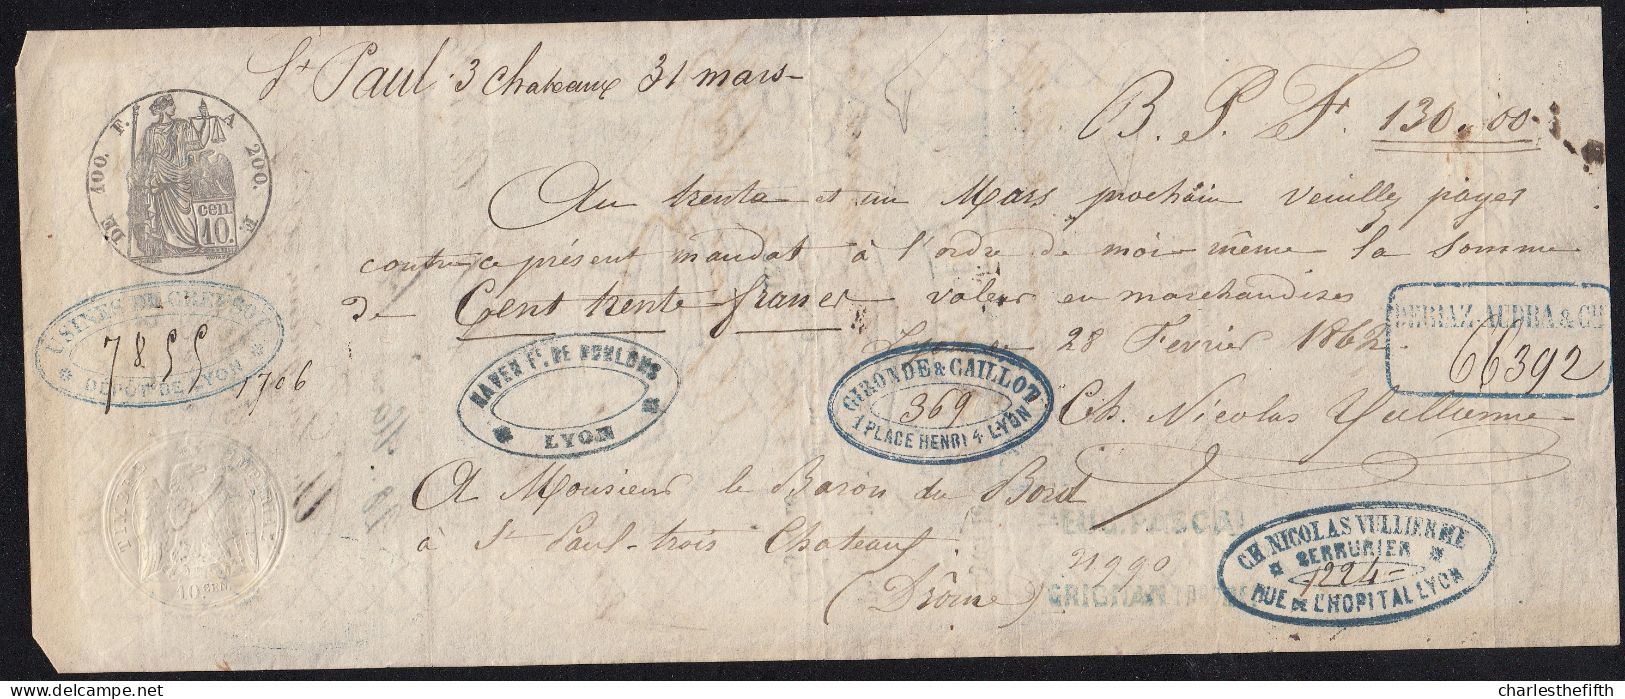 St Paul 3 Chateaux 31 mars
B. P. Fr. 130.00
DE 100. F. A 200. F.
cen. 10.
Au trente et un Mars prochain veuillez payer
contre ce présent mandat à l'ordre de moi-même la somme
de Cent trente francs valeur en marchandises
Lyon 28 Fevrier 1862
USINES DU CREUSOT
7855
DEPOT DE LYON
1706
DE BOULONS
LYON
GIRONDE & CAILLOT
369
1 PLACE HENRI 4 LYON
DEGIAZ-AUDRA & CIE
66392
Ch. Nicolas Vullienne
A Monsieur le Baron du Bord
à St Paul-trois Chateaux
(Drôme)
PASCAL
21990
GRIGNAN
CH NICOLAS VULLIENNE
SERRURIER
1224
RUE DE L'HOPITAL LYON
10 CEN
charlesthefifth